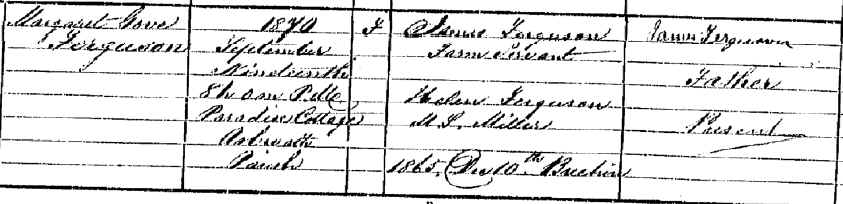 Margaret Gove
Ferguson
1870
September
Nineteenth
8h 0m P.M.
Paradise Cottage
Arbroath
Parish
F
James Ferguson
Farm Servant
Helen Ferguson
M.S. Miller
1865, Dec 10th Brechin
James Ferguson
Father
Present